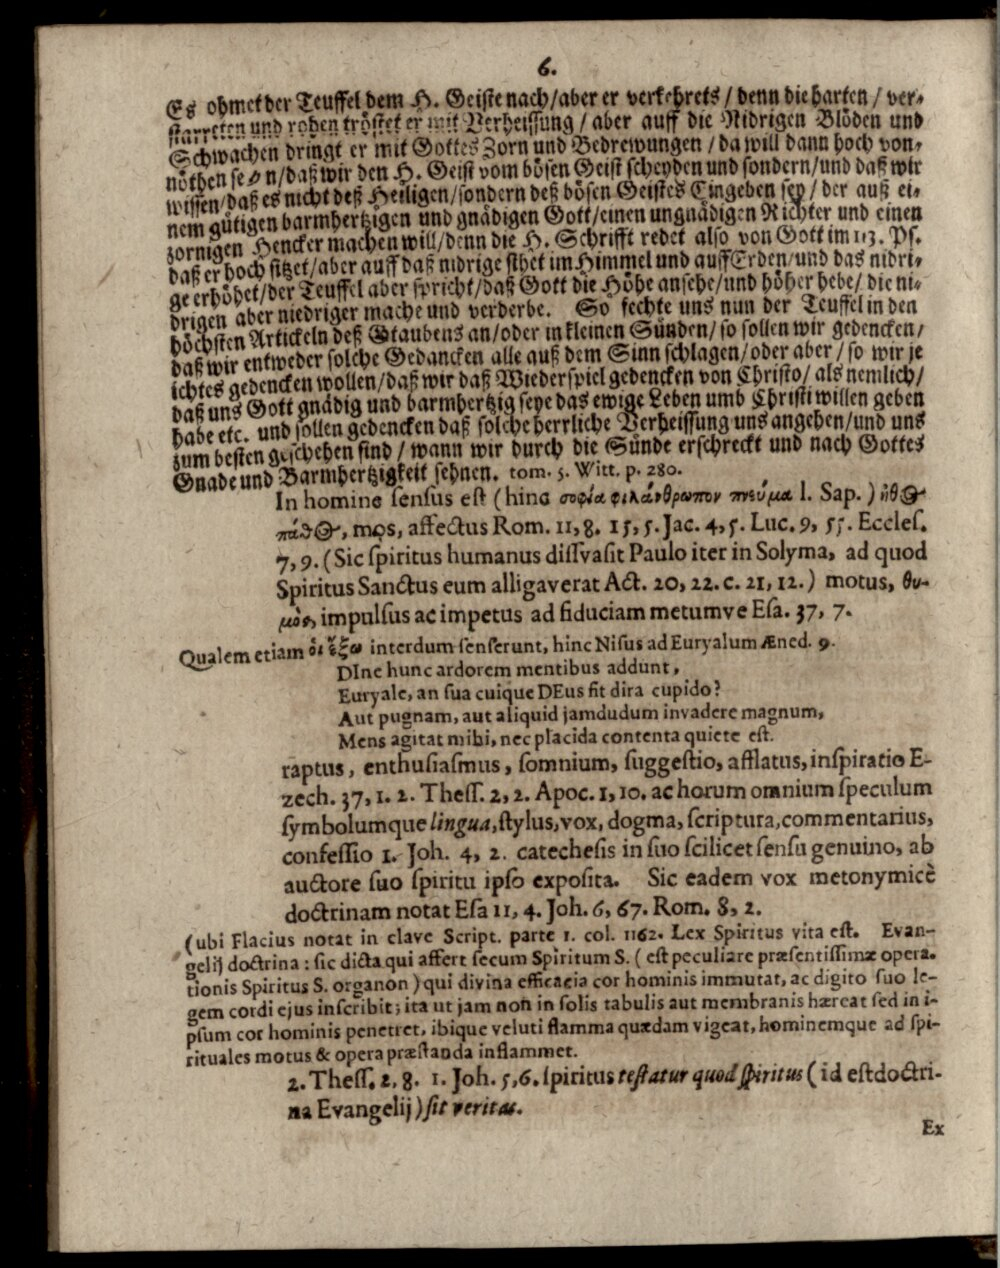 6.
Es ohmet der Teuffel dem H. Geiste nach/aber er verkehrets/denn die harten/ver-
starreten und rohen tröstet er mit Verheissung/aber auff die Nidrigen Blöden und
Schwachen dringt er mit Gottes Zorn und Bedrewungen/da will dann hoch von-
nöthen seyn/daß wir den H. Geist vom bösen Geist scheyden und sondern/und daß wir
wissen/daß es nicht deß Heiligen/sondern deß bösen Geistes Eingeben sey/der auß ei-
nem gütigen barmhertzigen und gnädigen Gott/einen ungnädigen Richter und einen
zornigen Hencker machen will/denn die H. Schrifft redet also von Gott im 113. Ps.
daß er hoch sitzet/aber auff daß nidrige sihet im Himmel und auff Erden/und das nidri-
ge erhöhet/der Teuffel aber spricht/daß Gott die Höhe ansehe/und höher hebe/die ni-
drigen aber niedriger mache und verderbe. So fechte uns nun der Teuffel in den
höchsten Artickeln deß Glaubens an/oder in kleinen Sünden/so sollen wir gedencken/
daß wir entweder solche Gedancken alle auß dem Sinn schlagen/oder aber/so wir je
ichtes gedencken wollen/daß wir daß Wiederspiel gedencken von Christo/als nemlich/
daß uns Gott gnädig und barmhertzig seye das ewige Leben umb Christi willen geben
habe etc. und sollen gedencken daß solche herrliche Verheissung uns angehen/und uns
zum besten geschehen sind/wann wir durch die Sünde erschreckt und nach Gottes
Gnade und Barmhertzigkeit sehnen. tom. 5. Witt. p. 280.
In homine sensus est (hinc σοφία φιλάνθρωπον πνεύμα l. Sap.) ἦθ Θ
πάθΘ, mos, affectus Rom. 11, 8. 15, 5. Jac. 4, 5. Luc. 9, 55. Eccles.
7, 9. (Sic spiritus humanus dissvasit Paulo iter in Solyma, ad quod
Spiritus Sanctus eum alligaverat Act. 20, 22. c. 21, 12.) motus, θυ-
μὸς, impulsus ac impetus ad fiduciam metumve Esa. 37, 7.
Qualem etiam οἱ ἔξω interdum senserunt, hinc Nisus ad Euryalum Æned. 9.
DIne hunc ardorem mentibus addunt,
Euryale, an sua cuique DEus fit dira cupido?
Aut pugnam, aut aliquid jamdudum invadere magnum,
Mens agitat mihi, nec placida contenta quiete est.
raptus, enthusiasmus, somnium, suggestio, afflatus, inspiratio E-
zech. 37, 1. 2. Thess. 2, 2. Apoc. 1, 10. ac horum omnium speculum
symbolumque lingua, stylus, vox, dogma, scriptura, commentarius,
confessio 1. Joh. 4, 2. catechesis in suo scilicet sensu genuino, ab
auctore suo spiritu ipso exposita. Sic eadem vox metonymicè
doctrinam notat Esa 11, 4. Joh. 6, 67. Rom. 8, 2.
(ubi Flacius notat in clave Script. parte 1. col. 1162. Lex Spiritus vita est. Evan-
gelij doctrina: sic dicta qui affert secum Spiritum S. (est peculiare præsentissimæ opera-
tionis Spiritus S. organon) qui divina efficacia cor hominis immutat, ac digito suo le-
gem cordi ejus inscribit; ita ut jam non in solis tabulis aut membranis hæreat sed in i-
psum cor hominis penetret, ibique veluti flamma quædam vigeat, hominemque ad spi-
rituales motus & opera præstanda inflammet.
2. Thess. 2, 8. 1. Joh. 5, 6. spiritus testatur quod spiritus (id est doctri-
na Evangelij) sit veritas.
Ex